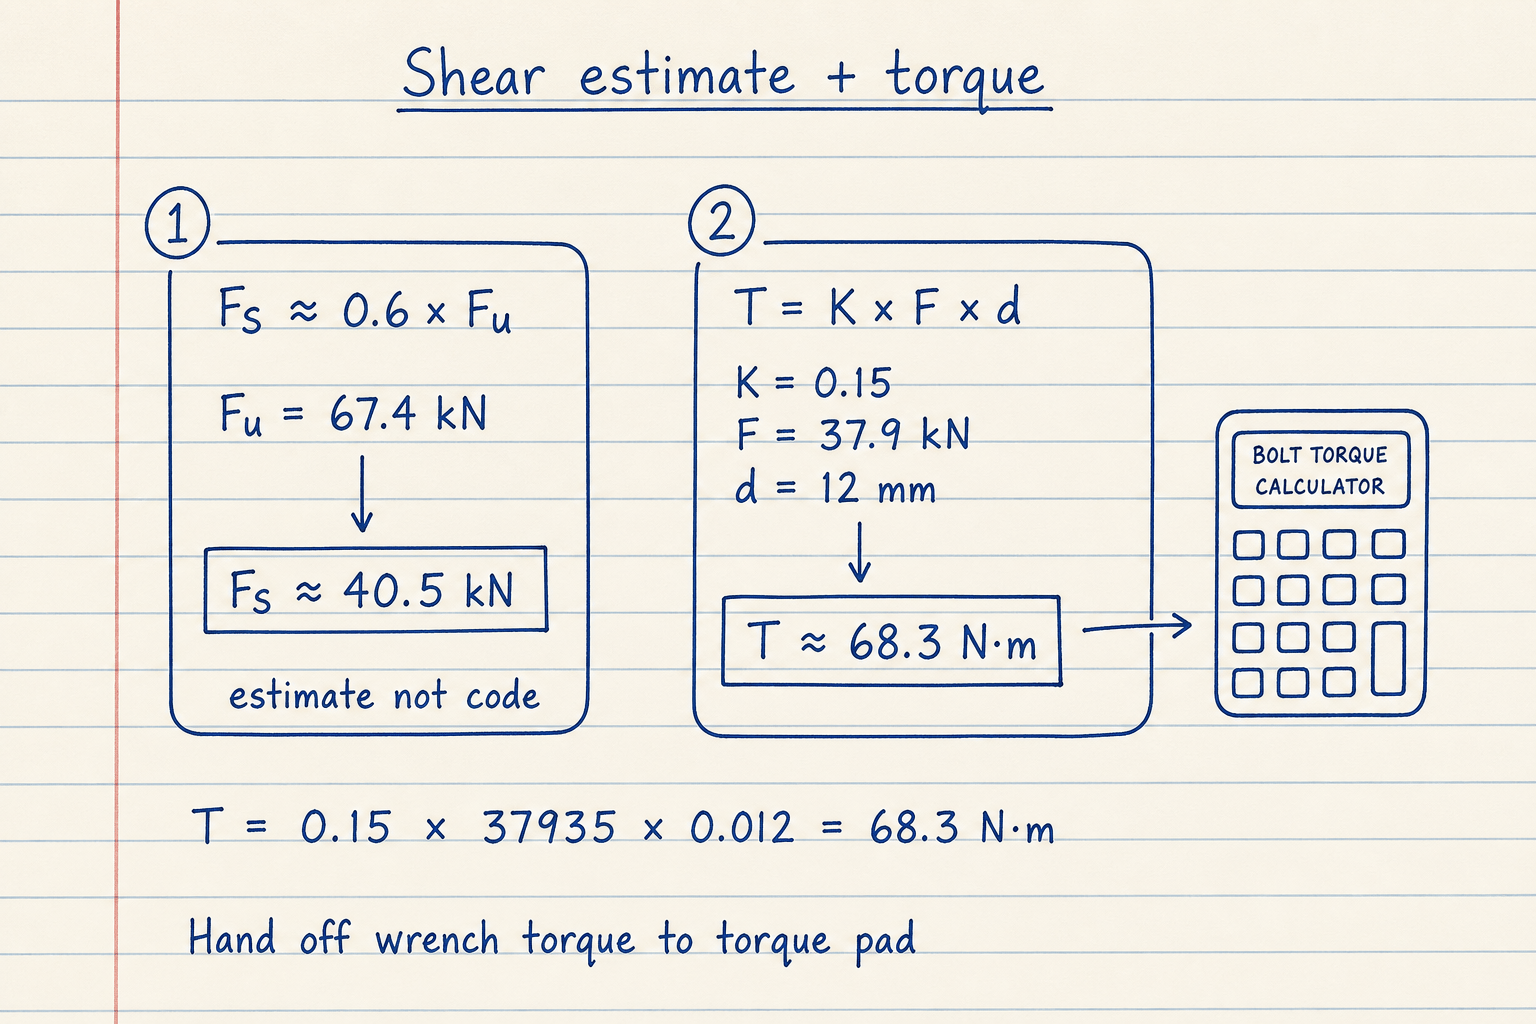 Shear estimate + torque
1
Fs ≈ 0.6 × Fu
Fu = 67.4 kN
Fs ≈ 40.5 kN
estimate not code
2
T = K × F × d
K = 0.15
F = 37.9 kN
d = 12 mm
T ≈ 68.3 N·m
BOLT TORQUE
CALCULATOR
T = 0.15 × 37935 × 0.012 = 68.3 N·m
Hand off wrench torque to torque pad